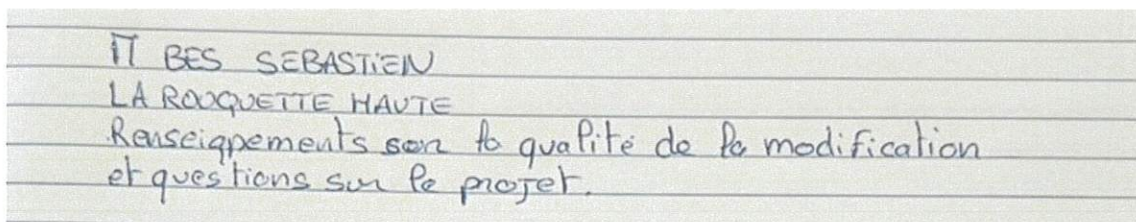 M BES SEBASTIEN
LA ROUQUETTE HAUTE
Renseignements sur la qualité de la modification
et questions sur le projet.